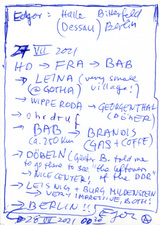 Edgor: Halle Bitterfeld
(Dessau) Berlin
27 VII 2021
HD → FRA → BAB
→ LEINA (very small
@ GOTHA) village!)
→ WIPPERODA → GEORGENTHAL
(DÖNER)
→ Ohrdruf
→ BAB → BRANDIS
ca. 250 km (GAS + COFFE)
→ DÖBELN (Gester B. told me
to go there to see "the leftovers"
→ NICE CENTER) of the DDR
→ LEISNIG + BURG MILDENSTEIN
→ VERY IMPRESSIVE, BOTH!
→ BERLIN!!!
28 VII 2021 00